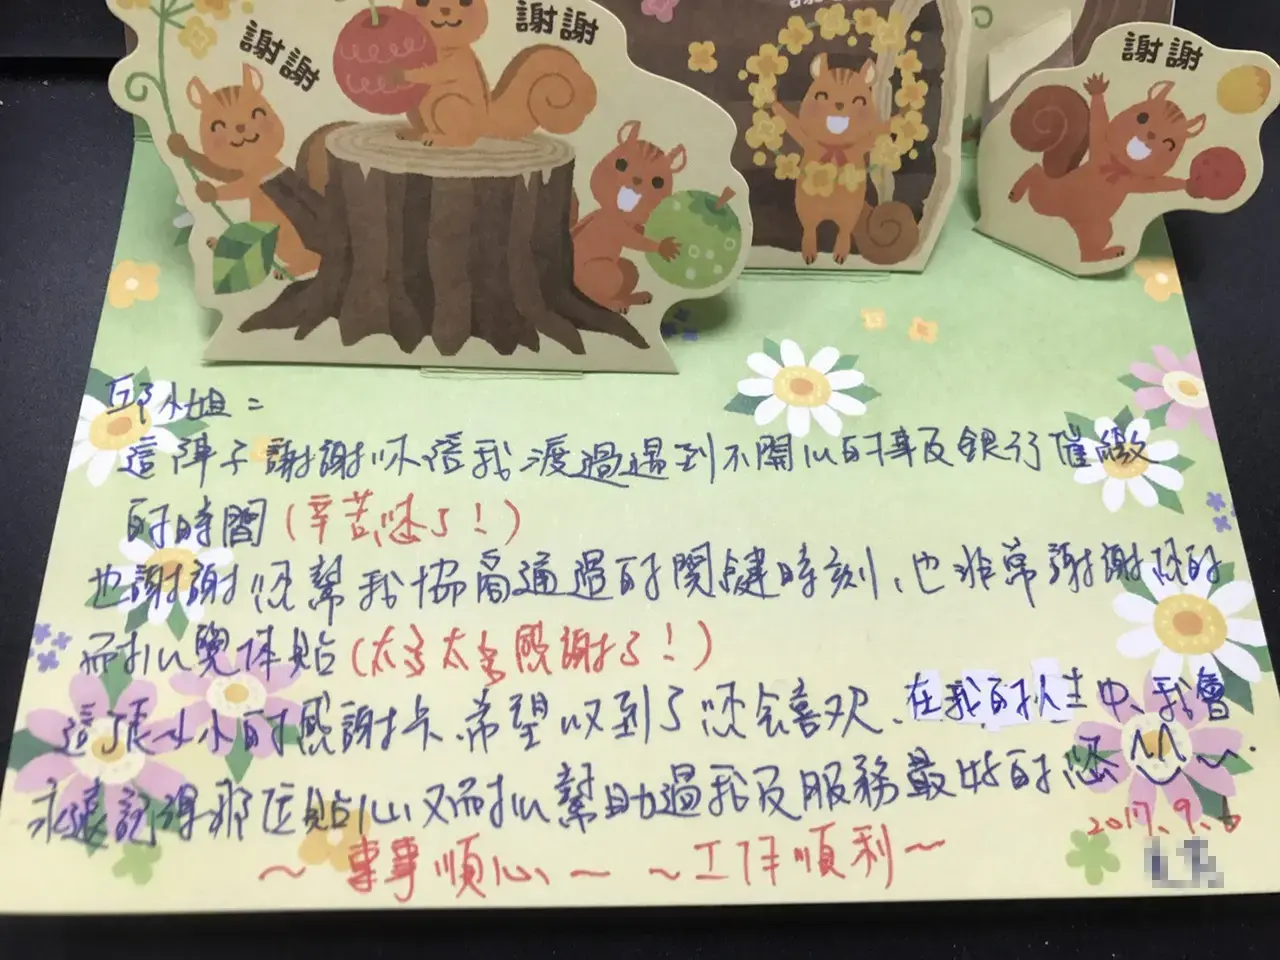 謝謝
謝謝
謝謝
邱小姐：
這陣子謝謝你陪我渡過遇到不開心的事及銀行催繳
的時間（辛苦您了！）
也謝謝您幫我協商通過的關鍵時刻、也非常謝謝您的
耐心與体貼（太多太多感謝了！）
這張小小的感謝卡、希望收到了您会喜欢、在我的人生中、我會
永遠記得那位貼心又耐心幫助過我及服務最好的您
～事事順心～～工作順利～
2017.9.6